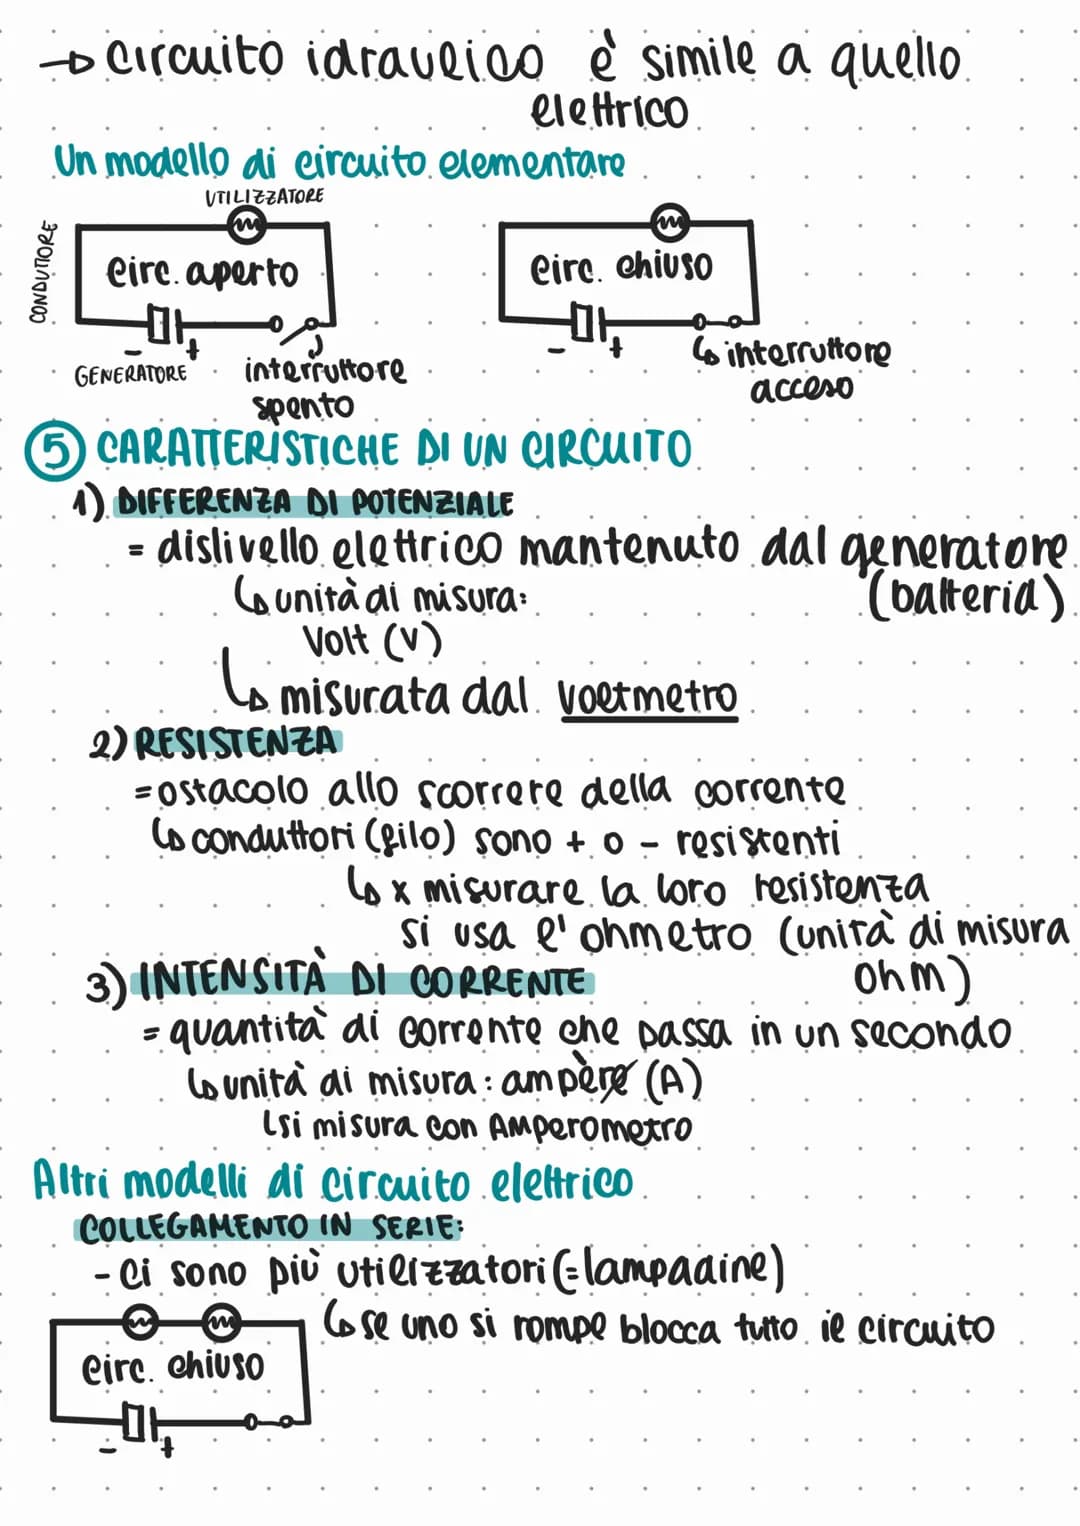 → circuito idraulico è simile a quello
elettrico
Un modello di circuito elementare
UTILIZZATORE
CONDUTTORE
circ. aperto
- +
GENERATORE
interruttore
spento
circ. chiuso
- +
↳ interruttore
acceso
5 CARATTERISTICHE DI UN CIRCUITO
1) DIFFERENZA DI POTENZIALE
= dislivello elettrico mantenuto dal generatore
(batteria)
↳ unità di misura:
Volt (V)
↳ misurata dal voltmetro
2) RESISTENZA
= ostacolo allo scorrere della corrente
↳ conduttori (filo) sono + o - resistenti
↳ x misurare la loro resistenza
si usa l'ohmetro (unità di misura
ohm)
3) INTENSITÀ DI CORRENTE
= quantità di corrente che passa in un secondo
↳ unità di misura: ampère (A)
↳ si misura con Amperometro
Altri modelli di circuito elettrico
COLLEGAMENTO IN SERIE:
- ci sono più utilizzatori (= lampadine)
↳ se uno si rompe blocca tutto il circuito
circ. chiuso
- +